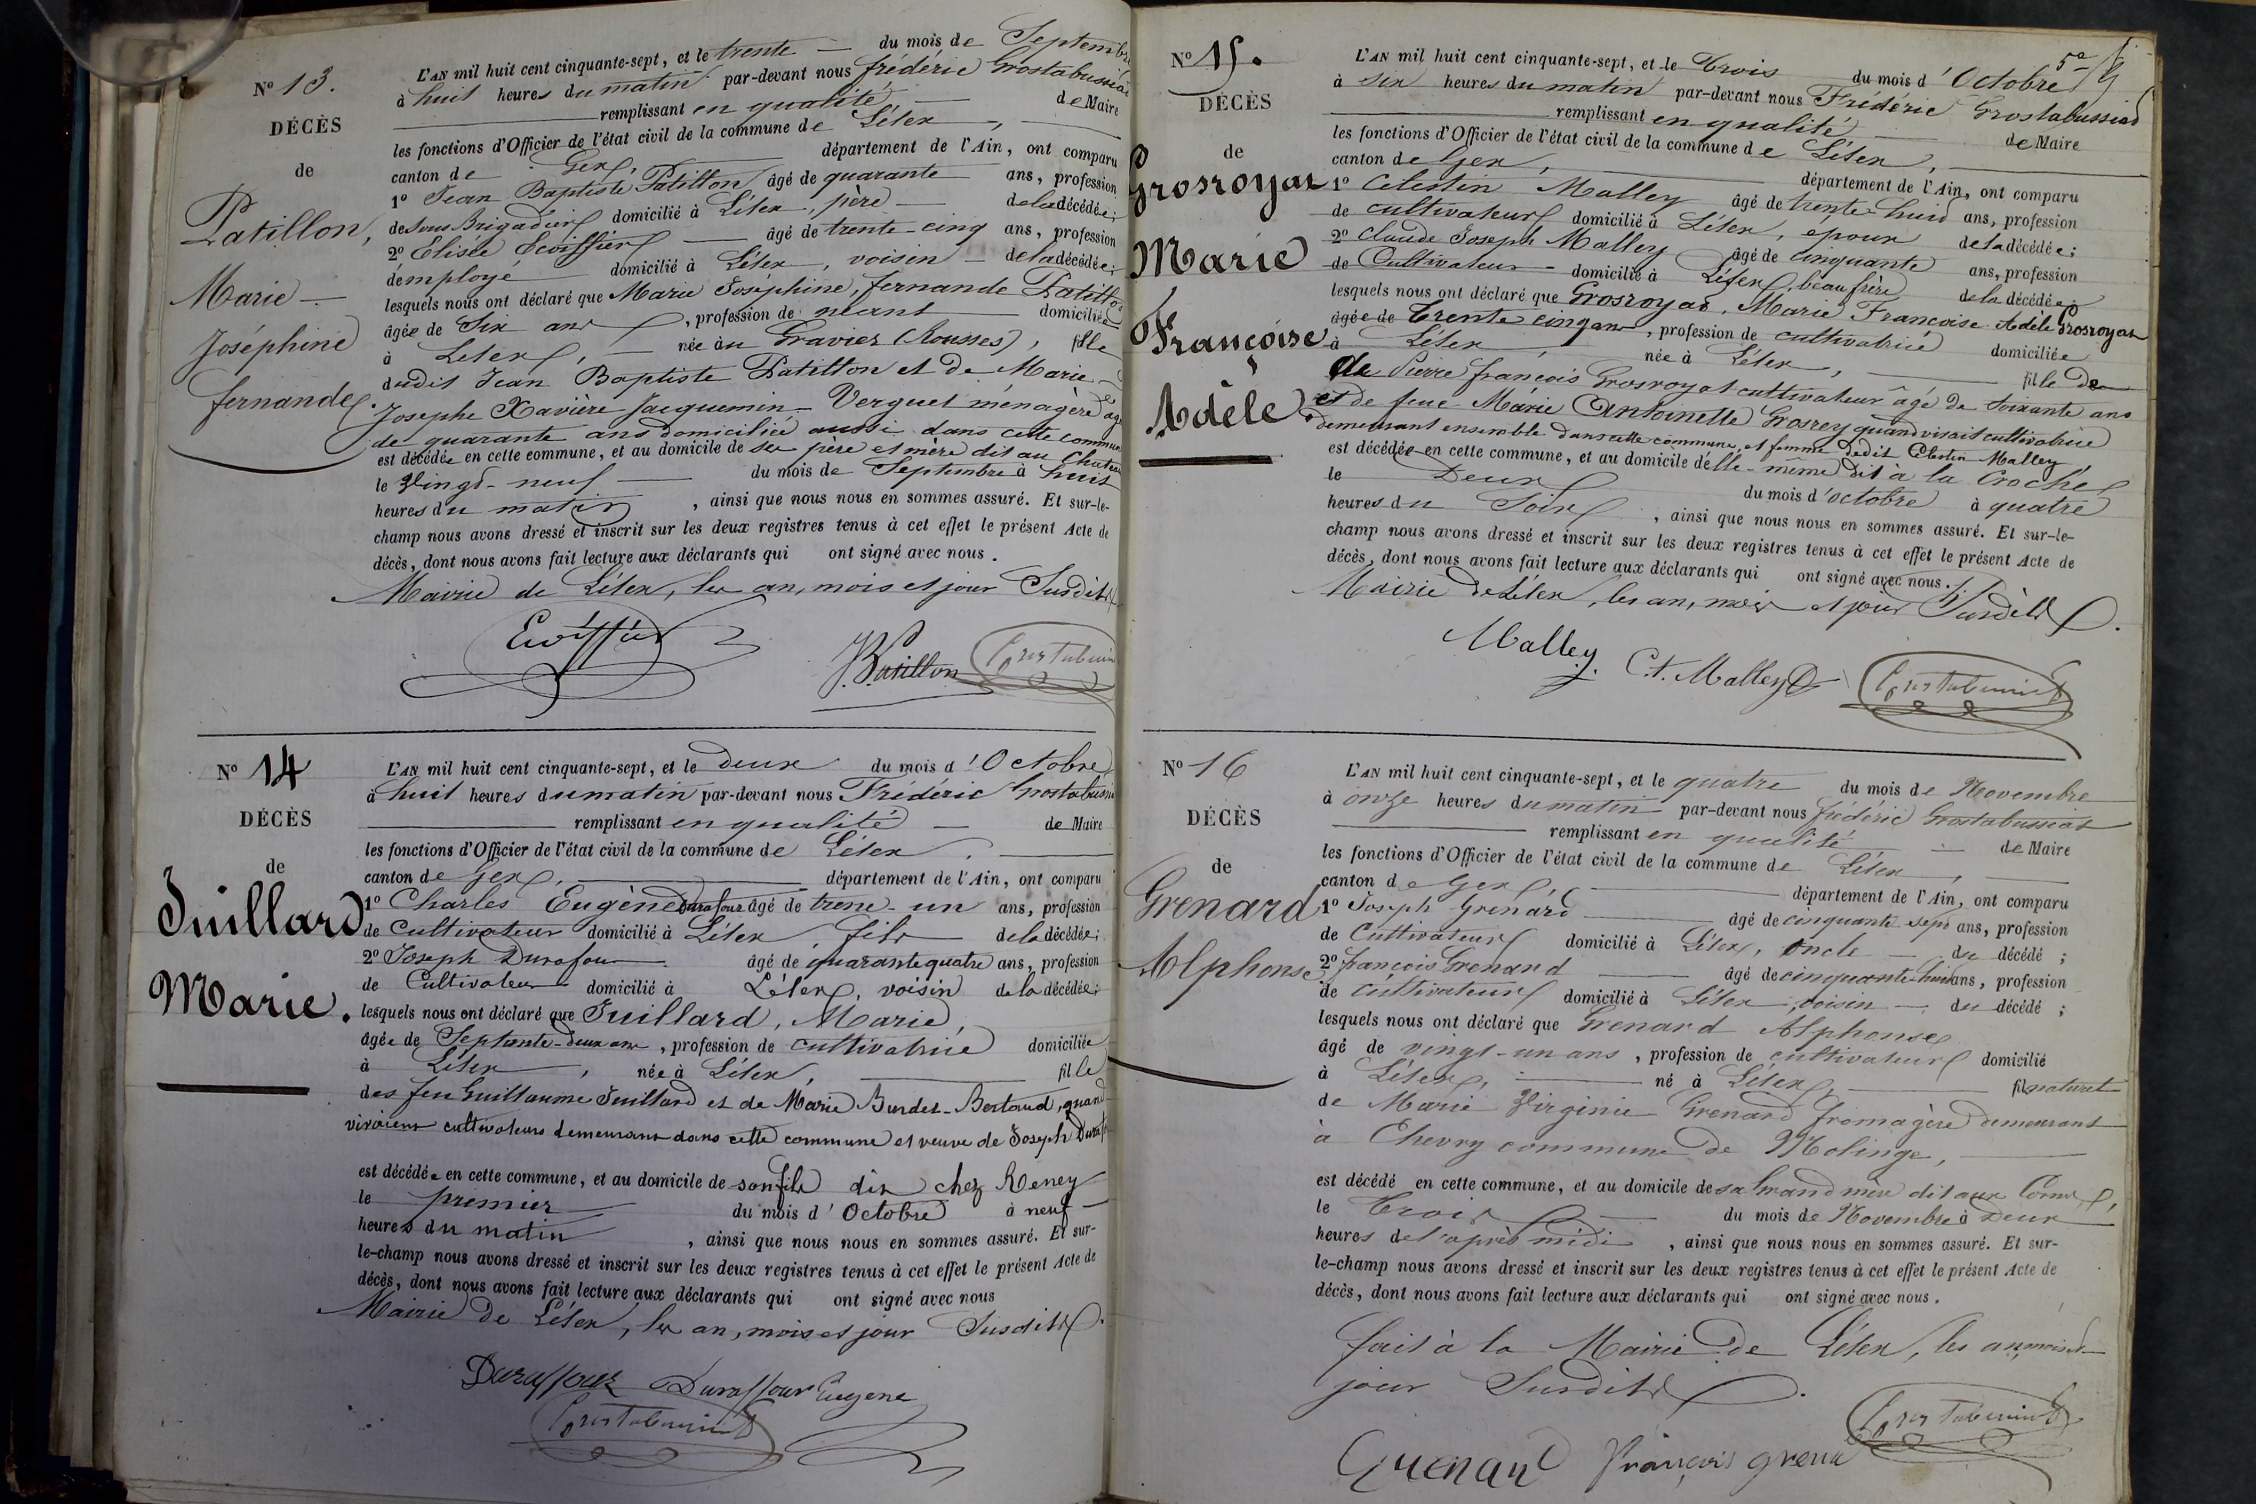 N° 13.
DÉCÈS
de
Patillon,
Marie
Joséphine
fernande.
L'AN mil huit cent cinquante-sept, et le trente du mois de Septembre
à huit heures du matin par-devant nous frédéric Grostabussiat
remplissant en qualité de Maire
les fonctions d'Officier de l'état civil de la commune de Lélex,
canton de Gex, département de l'Ain, ont comparu
1° Jean Baptiste Patillon âgé de quarante ans, profession
de Sous Brigadier domicilié à Lélex, père de la décédée;
2° Elisée Ecoiffier âgé de trente-cinq ans, profession
d'employé domicilié à Lélex, voisin de la décédée;
lesquels nous ont déclaré que Marie Joséphine, fernande Patillon
âgée de Six ans, profession de néant domiciliée
à Lélex, née au Gravier (Rousses), fille
dudit Jean Baptiste Patillon et de Marie
Josephe Xavière Jacquemin-Verguet ménagère âgée
de quarante ans domiciliée aussi dans cette commune
est décédée en cette commune, et au domicile de ses père et mère dit au
le Vingt-neuf du mois de Septembre à huit
heures du matin, ainsi que nous nous en sommes assuré. Et sur-le-
champ nous avons dressé et inscrit sur les deux registres tenus à cet effet le présent Acte de
décès, dont nous avons fait lecture aux déclarants qui ont signé avec nous.
Mairie de Lélex, les an, mois et jour Susdits
Ecoiffier
J. B. Patillon Grostabussiat
N° 14
DÉCÈS
de
Juillard
Marie.
L'AN mil huit cent cinquante-sept, et le deux du mois d'Octobre
à huit heures du matin par-devant nous Frédéric Grostabussiat
remplissant en qualité de Maire
les fonctions d'Officier de l'état civil de la commune de Lélex.
canton de Gex, département de l'Ain, ont comparu
1° Charles Eugène Durafour âgé de trene-un ans, profession
de Cultivateur domicilié à Lélex, fils de la décédée;
2° Joseph Durafour âgé de quarante quatre ans, profession
de Cultivateur domicilié à Lélex, voisin de la décédée;
lesquels nous ont déclaré que Juillard, Marie,
âgée de Septante-deux ans, profession de cultivatrice domiciliée
à Lélex, née à Lélex, fille
des feu Guillaume Juillard et de Marie Burdet-Bertaud, quand
vivaient cultivateurs demeurant dans cette commune et veuve de Joseph Durafour
est décédée en cette commune, et au domicile de son fils dit chez Reney
le premier du mois d'Octobre à neuf
heures du matin, ainsi que nous nous en sommes assuré. Et sur-
le-champ nous avons dressé et inscrit sur les deux registres tenus à cet effet le présent Acte de
décès, dont nous avons fait lecture aux déclarants qui ont signé avec nous
Mairie de Lélex, les an, mois et jour Susdits.
Duraffour Duraffour Eugene
Grostabussiat
N° 15.
DÉCÈS
de
Grosroyat
Marie
Françoise
Adèle.
L'AN mil huit cent cinquante-sept, et le Trois du mois d'Octobre
à six heures du matin par-devant nous Frédéric Grostabussiat
remplissant en qualité de Maire
les fonctions d'Officier de l'état civil de la commune de Lélex,
canton de Gex, département de l'Ain, ont comparu
1° Célestin Malley âgé de trente-huit ans, profession
de cultivateur domicilié à Lélex, epoux de la décédée;
2° Claude Joseph Malley âgé de cinquante ans, profession
de Cultivateur domicilié à Lélex, beau frère de la décédée;
lesquels nous ont déclaré que Grosroyat, Marie Françoise Adèle Grosroyat
âgée de Trente cinq ans, profession de cultivatrice domiciliée
à Lélex, née à Lélex, fille De
de Pierre françois Grosroyat cultivateur âgé de soixante ans
et de feue Marie Antoinette Grosrey quand vivait cultivatrice
demeurant ensemble dans cette commune, et femme dedit Célestin Malley
est décédée en cette commune, et au domicile d'elle-même dit à la Croche
le Deux du mois d'octobre à quatre
heures du Soir, ainsi que nous nous en sommes assuré. Et sur-le-
champ nous avons dressé et inscrit sur les deux registres tenus à cet effet le présent Acte de
décès, dont nous avons fait lecture aux déclarants qui ont signé avec nous.
Mairie de Lélex, les an, mois et jour Susdits.
Malley. C.t. Malley Grostabussiat
N° 16
DÉCÈS
de
Grenard
Alphonse
L'AN mil huit cent cinquante-sept, et le quatre du mois de Novembre
à onze heures du matin par-devant nous frédéric Grostabussiat
remplissant en qualité de Maire
les fonctions d'Officier de l'état civil de la commune de Lélex,
canton de Gex, département de l'Ain, ont comparu
1° Joseph Grenard âgé de cinquante sept ans, profession
de Cultivateur domicilié à Lélex, oncle du décédé;
2° françois Grenard âgé de cinquante-huit ans, profession
de cultivateur domicilié à Lélex, voisin du décédé;
lesquels nous ont déclaré que Grenard Alphonse
âgé de vingt-un ans, profession de cultivateur domicilié
à Lélex, né à Lélex, fils naturel
de Marie Virginie Grenard fromagère demeurant
à Chevry commune de Molinge,
est décédé en cette commune, et au domicile de sa Grand mère dit aux
le Trois du mois de Novembre à Deux
heures de l'après midi, ainsi que nous nous en sommes assuré. Et sur-
le-champ nous avons dressé et inscrit sur les deux registres tenus à cet effet le présent Acte de
décès, dont nous avons fait lecture aux déclarants qui ont signé avec nous.
fait à la Mairie de Lélex, les an, mois et
jour Susdits.
Grostabussiat
Grenard François grenard